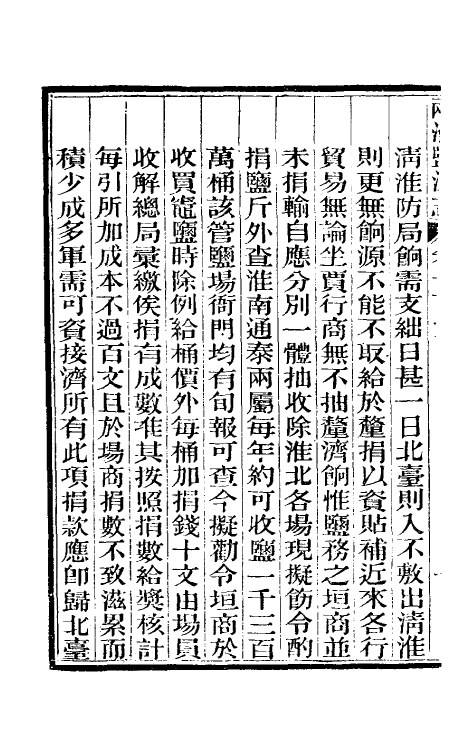 清淮防局餉需支絀日甚一日北臺則入不敷出清淮
則更無餉源不能不取給於釐捐以資貼補近來各行
貿易無論坐賈行商無不抽釐濟餉惟鹽務之垣商並
未捐輸自應分別一體抽收除淮北各場現擬飭令酌
捐鹽斤外查淮南通泰兩屬每年約可收鹽一千三百
萬桶該管鹽場衙門均有旬報可查今擬勸令垣商於
收買竈鹽時除例給桶價外每桶加捐錢十文由場員
收解總局彚繳俟捐有成數准其按照捐數給奬核計
每引所加成本不過百文且於場商捐數不致滋累而
積少成多軍需可資接濟所有此項捐款應卽歸北臺